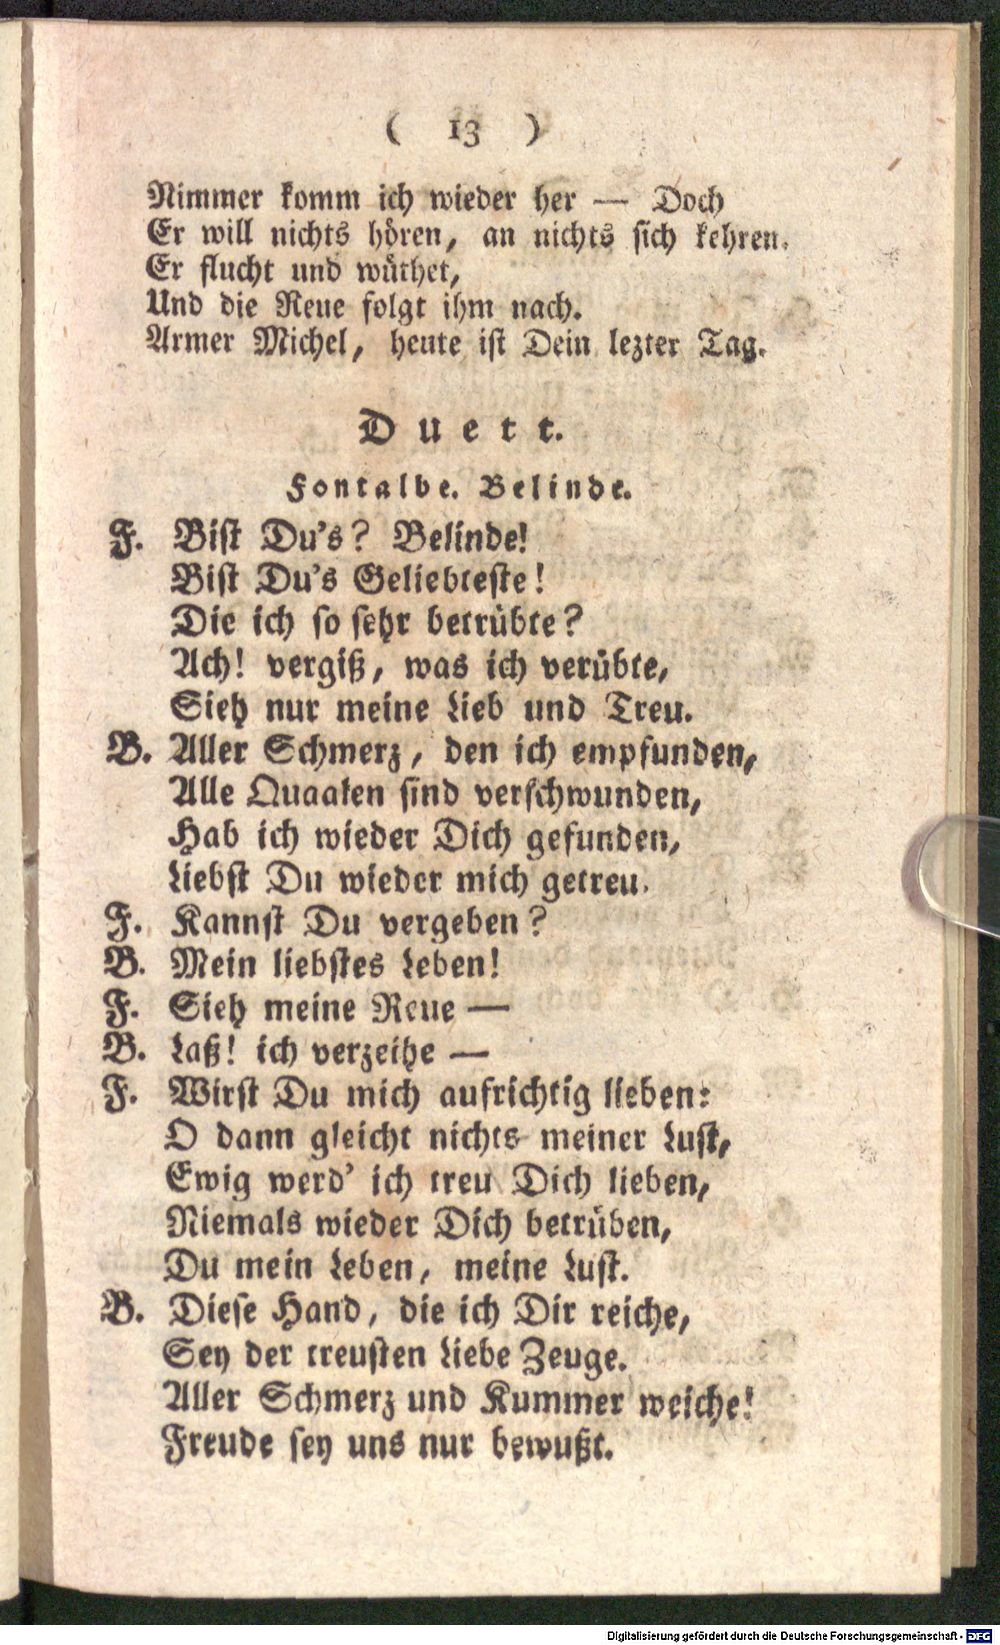 ( 13 )
Nimmer komm ich wieder her — Doch
Er will nichts hören, an nichts sich kehren.
Er flucht und wüthet,
Und die Reue folgt ihm nach.
Armer Michel, heute ist Dein lezter Tag.
Duett.
Fontalbe. Belinde.
F. Bist Du's? Belinde!
Bist Du's Geliebteste!
Die ich so sehr betrübte?
Ach! vergiß, was ich verübte,
Sieh nur meine Lieb und Treu.
B. Aller Schmerz, den ich empfunden,
Alle Quaalen sind verschwunden,
Hab ich wieder Dich gefunden,
Liebst Du wieder mich getreu.
F. Kannst Du vergeben?
B. Mein liebstes Leben!
F. Sieh meine Reue —
B. Laß! ich verzeihe —
F. Wirst Du mich aufrichtig lieben:
O dann gleicht nichts meiner Lust,
Ewig werd' ich treu Dich lieben,
Niemals wieder Dich betrüben,
Du mein Leben, meine Lust.
B. Diese Hand, die ich Dir reiche,
Sey der treusten Liebe Zeuge.
Aller Schmerz und Kummer weiche!
Freude sey uns nur bewußt.
Digitalisierung gefördert durch die Deutsche Forschungsgemeinschaft - DFG